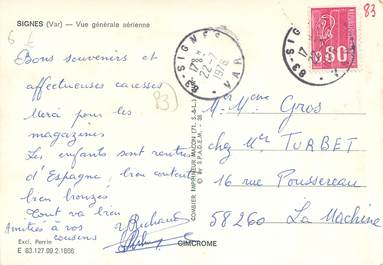 SIGNES (Var) — Vue générale aérienne
6 £
83
83
83-SIGNES
17 H
22-7
1976
VAR
83-SIGNES
17 H
0.80
Bons souvenirs et
affectueuses caresses
Merci pour les
magazines
Les enfants sont rentrés
d'Espagne, bien contents
bien bronzés
Tout va bien
Amitiés à vos
cousins
Mr Mme Gros
chez Mr TURBET
16 rue Poussereau
58260 La Machine
COMBIER IMPRIMEUR MACON (71. S.-&-L.)
© By S.P.A.D.E.M.
Excl. Perrin
E 83.127.99.2.1866
CIMCROME